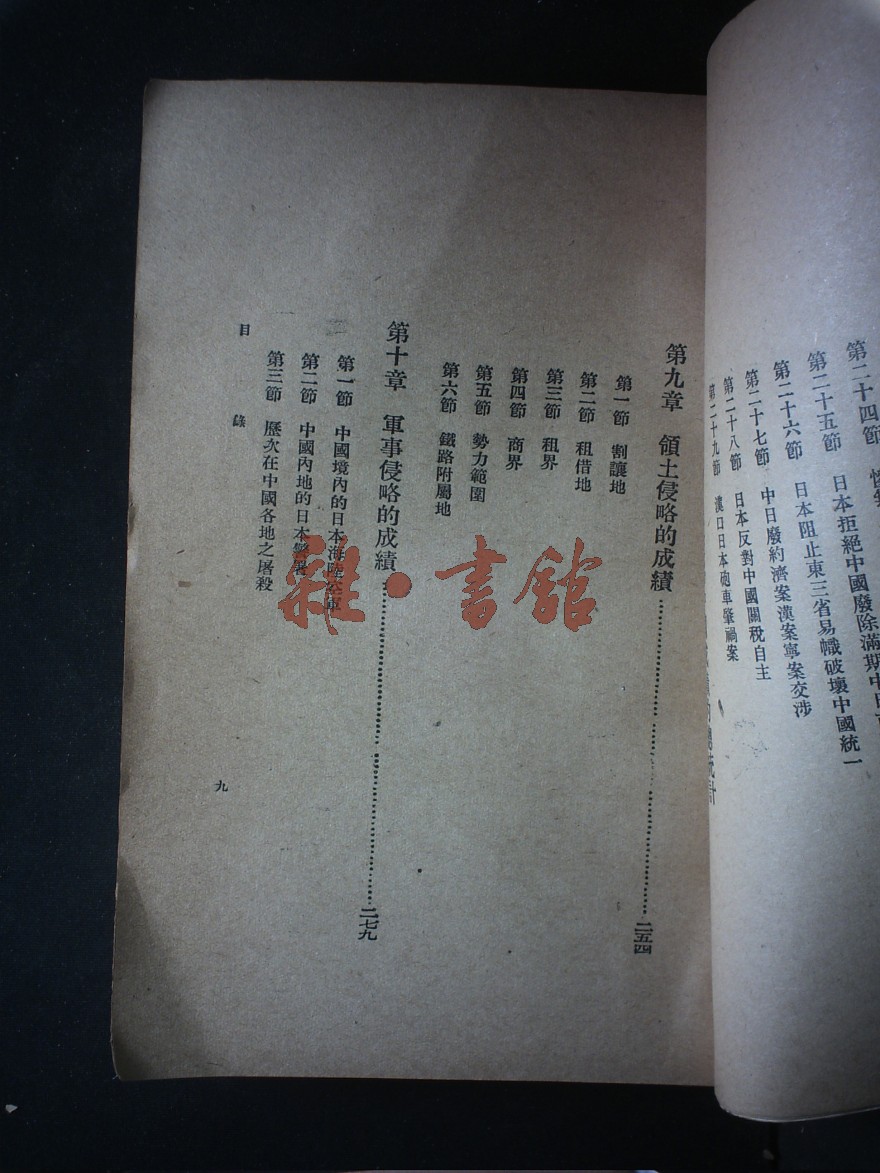 第二十四節
第二十五節 日本拒絕中國廢除滿期中日
第二十六節 日本阻止東三省易幟破壞中國統一
第二十七節 中日廢約濟案漢案寧案交涉
第二十八節 日本反對中國關稅自主
第二十九節 漢口日本砲車肇禍案
第九章 領土侵略的成績 二五四
第一節 割讓地
第二節 租借地
第三節 租界
第四節 商界
第五節 勢力範圍
第六節 鐵路附屬地
第十章 軍事侵略的成績 二七九
第一節 中國境內的日本海陸空軍
第二節 中國內地的日本警署
第三節 歷次在中國各地之屠殺
目錄
九
雜·書館